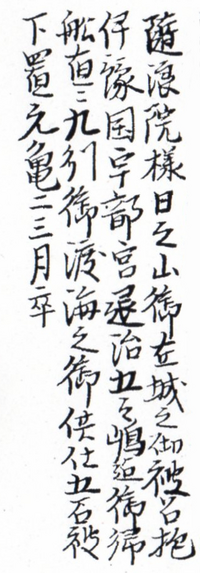 隨浪院樣日之山御在城之御被召抱
伊豫国宇都宮退治五之嶋迄御帰
船直ニ九引御渡海之御供仕五石被
下置元亀二三月卒